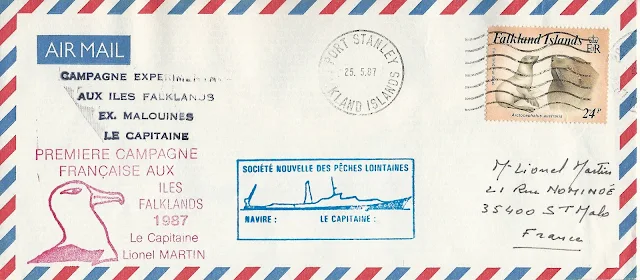 AIR MAIL
CAMPAGNE
AUX ILES FALKLANDS
EX. MALOUINES
LE CAPITAINE
PREMIERE CAMPAGNE
FRANÇAISE AUX
ILES
FALKLANDS
1987
Le Capitaine
Lionel MARTIN
PORT STANLEY
25.5.87
KLAND ISLANDS
SOCIÉTÉ NOUVELLE DES PÊCHES LOINTAINES
NAVIRE : LE CAPITAINE :
Falkland Islands
E II R
24P
Mr Lionel Martin
21 Rue NOMINOÉ
35400 ST Malo
France